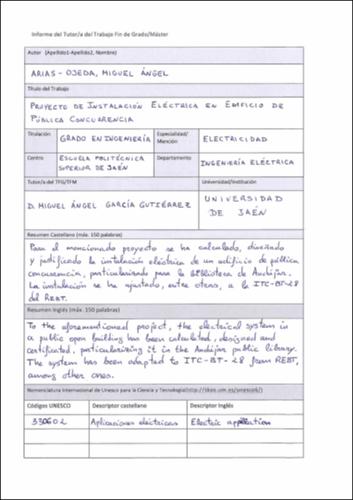 Informe del Tutor/a del Trabajo Fin de Grado/Máster
Autor (Apellido1-Apellido2, Nombre)
ARIAS-OJEDA, MIGUEL ÁNGEL
Título del Trabajo
PROYECTO DE INSTALACIÓN ELÉCTRICA EN EDIFICIO DE
PÚBLICA CONCURRENCIA
Titulación GRADO EN INGENIERÍA Especialidad/Mención ELECTRICIDAD
Centro ESCUELA POLITÉCNICA SUPERIOR DE JAÉN Departamento INGENIERÍA ELÉCTRICA
Tutor/a del TFG/TFM Universidad/Institución
D. MIGUEL ÁNGEL GARCÍA GUTIÉRREZ UNIVERSIDAD DE JAÉN
Resumen Castellano (máx. 150 palabras)
Para el mencionado proyecto se ha calculado, diseñado
y justificado la instalación eléctrica de un edificio de pública
concurrencia, particularizando para la Biblioteca de Andújar.
La instalación se ha ajustado, entre otras, a la ITC-BT-28
del REBT.
Resumen Inglés (máx. 150 palabras)
To the aforementioned project, the electrical system in
a public open building has been calculated, designed and
certificated, particularizing it in the Andújar public library.
The system has been adapted to ITC-BT-28 from REBT,
among other ones.
Nomenclatura Internacional de Unesco para la Ciencia y Tecnología(http://skos.um.es/unesco6/)
Códigos UNESCO Descriptor castellano Descriptor Inglés
330602 Aplicaciones eléctricas Electric application